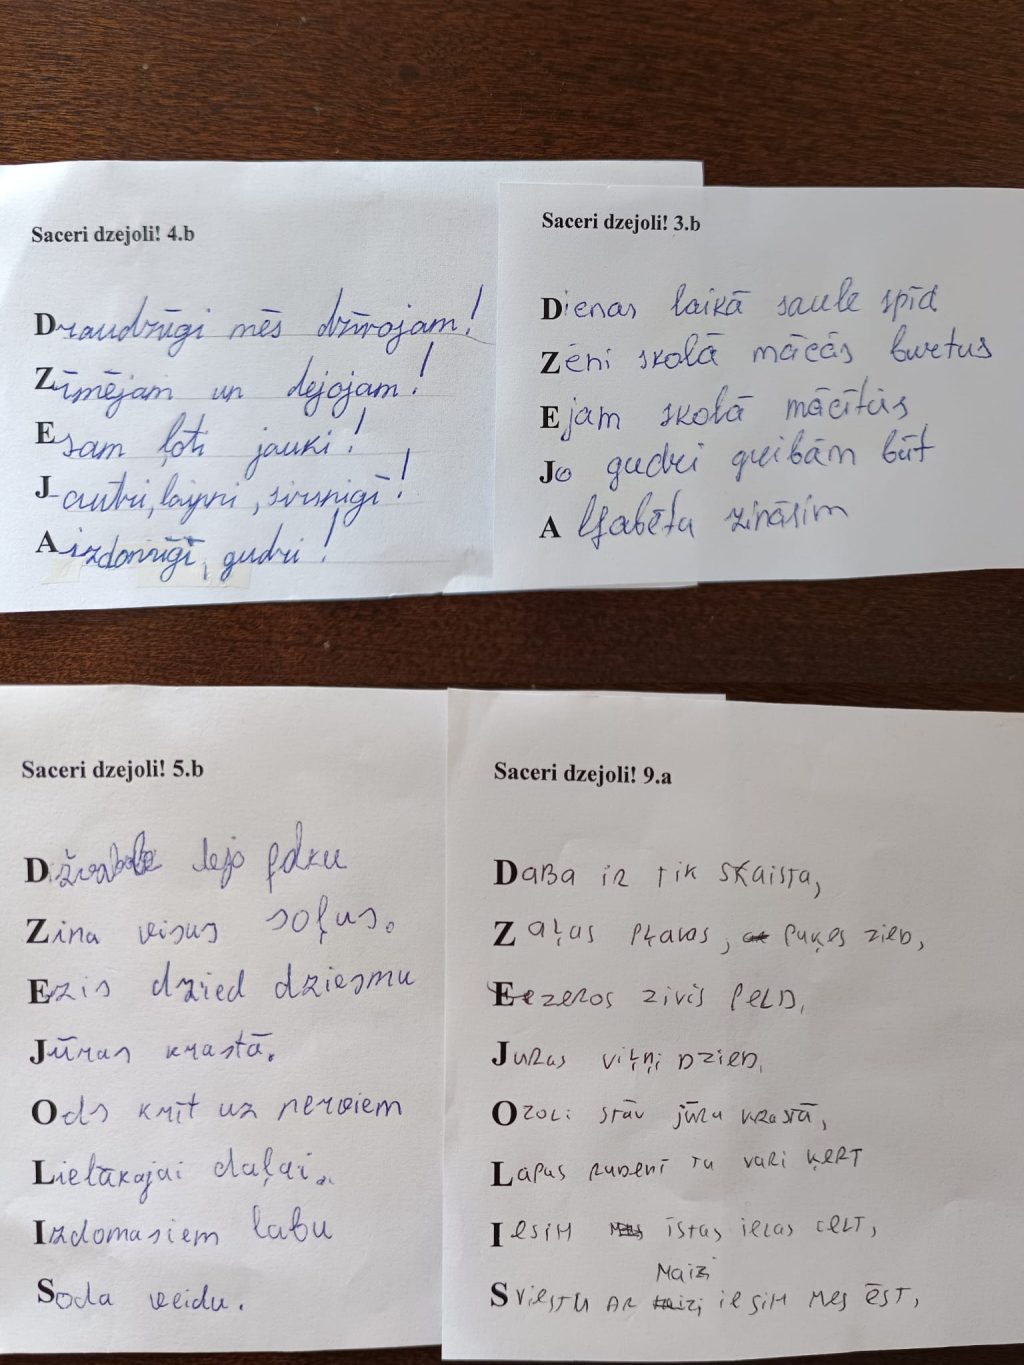 Saceri dzejoli! 4.b
Draudzīgi mēs dzīvojam!
Zīmējam un dejojam!
Esam ļoti jauki!
Jautri, laipni, sirsnīgi!
Aizdomīgi, gudri!
Saceri dzejoli! 3.b
Dienas laikā saule spīd
Zēni skolā mācās burtus
Ejam skolā mācītās
Jo gudri gribām būt
Alfabētu zināsim
Saceri dzejoli! 5.b
Dižvabole dejo polku
Zina visus soļus.
Ezis dzied dziesmu
Jūras krastā.
Ods krīt uz nerviem
Lielākajai daļai.
Izdomasiem labu
Soda veidu.
Saceri dzejoli! 9.a
Daba ir tik skaista,
Zaļas pļavas, puķes zied,
Ezeros zivis peld,
Juras viļņi dzied,
Ozoli stāv jūra krastā,
Lapas rudenī tu vari ķert
Iesim īstas ielas celt,
Sviestu ar maizi iesim mes ēst,